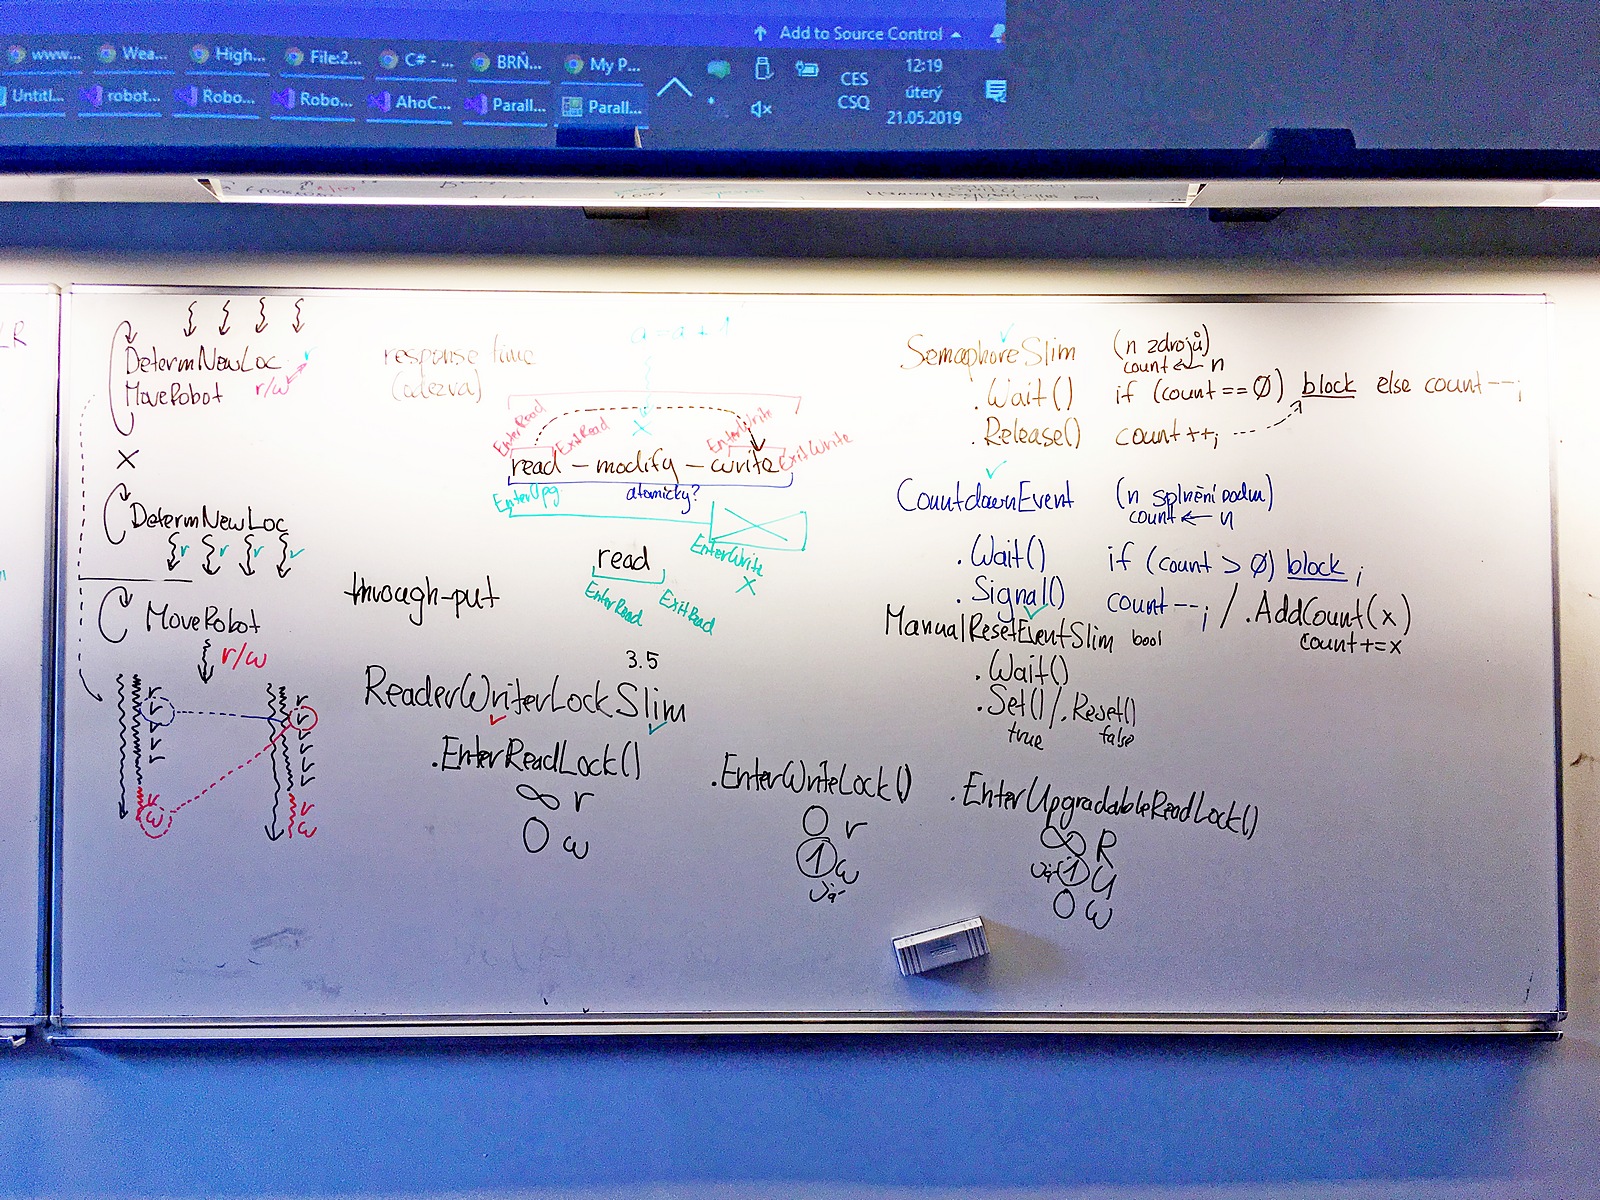 Add to Source Control
www...
Wea...
High...
File:2...
C# - ...
BRŇ...
My P...
Untitl...
robot...
Robo...
Robo...
AhoC...
Parall...
Parall...
CES
CSQ
12:19
úterý
21.05.2019
LR
DetermNewLoc r
MoveRobot r/w
X
DetermNewLoc
r r r r
MoveRobot
r/w
r
r
r
r
r
w
r
r
r
r
r
r
w
response time
(odezva)
a = a + 1
EnterRead
ExitRead
X
EnterWrite
ExitWrite
read – modify – write
EnterUpg
atomicky?
EnterWrite
X
read
EnterRead
ExitRead
through-put
3.5
ReaderWriterLockSlim
.EnterReadLock()
∞ r
0 w
.EnterWriteLock()
0 r
1 w
já
.EnterUpgradableReadLock()
∞ R
já 1 U
0 w
SemaphoreSlim (n zdrojů)
count ← n
.Wait() if (count == Ø) block else count--;
.Release() count++;
CountdownEvent (n splnění podm)
count ← n
.Wait() if (count > Ø) block;
.Signal() count--; / .AddCount(x)
count += x
ManualResetEventSlim bool
.Wait()
.Set() / .Reset()
true false